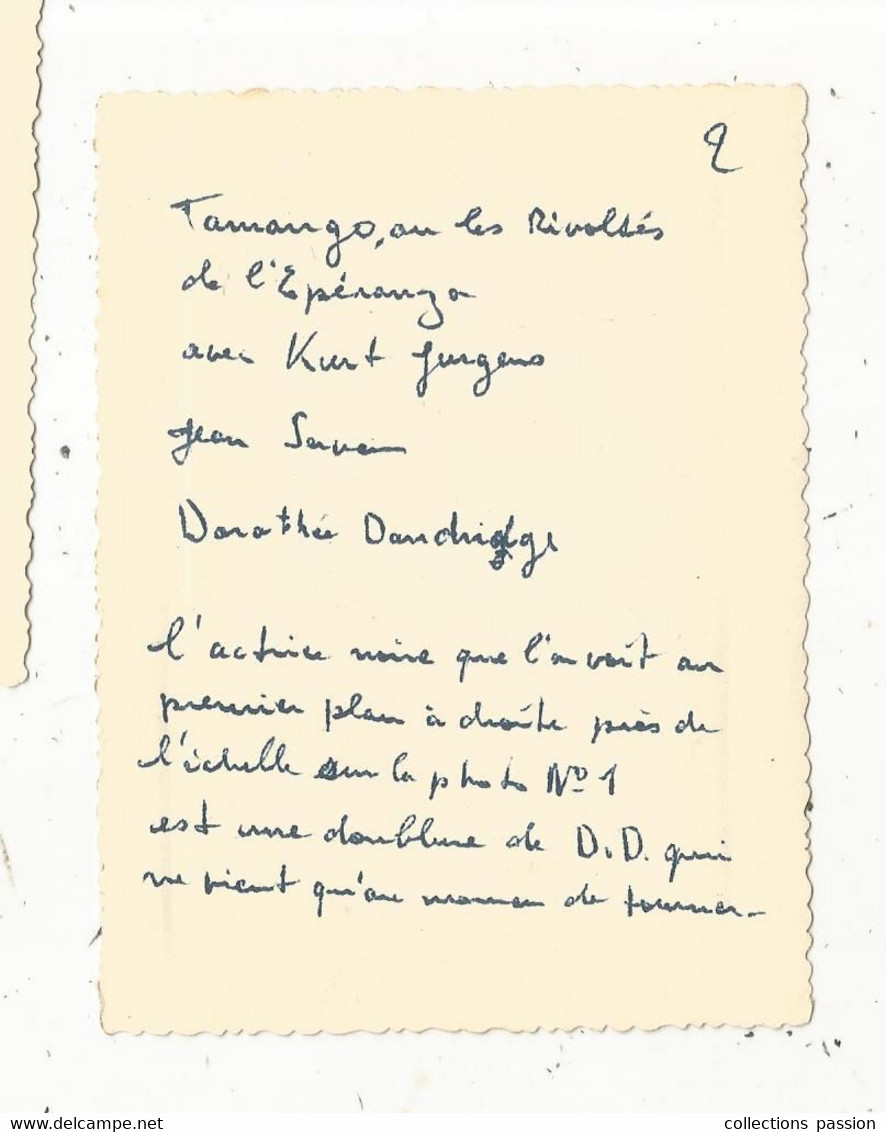 2
Tamango, ou les Rivoltés
de l'Epéranza
avec Kurt Jurgens
Jean Servais
Dorothée Dandridge
l'actrice noire que l'on voit au
premier plan à droite près de
l'échelle sur la photo N° 1
est une doublure de D.D. qui
ne vient qu'au moment de tourner -
collections passion
www.delcampe.net